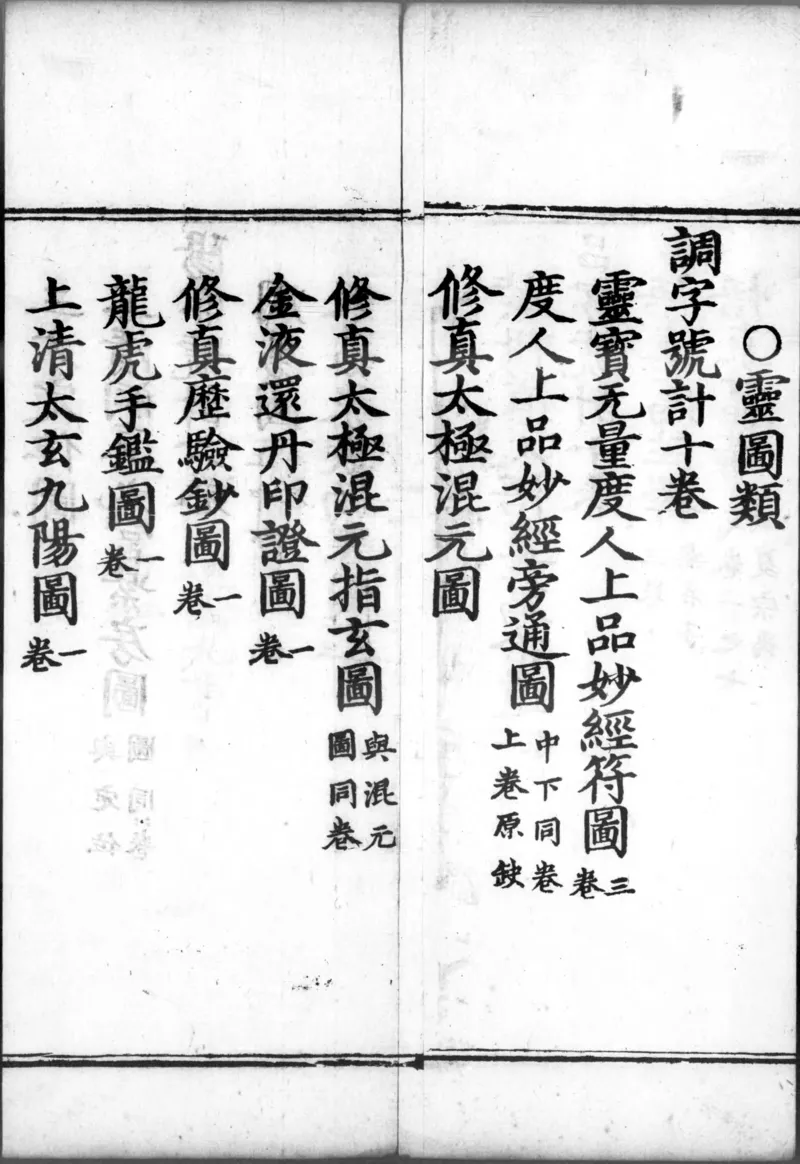 ○靈圖類
調字號計十卷
靈寶无量度人上品妙經符圖三卷
度人上品妙經旁通圖中下同卷上卷原缺
修真太極混元圖
修真太極混元指玄圖與混元圖同卷
金液還丹印證圖一卷
修真歷驗鈔圖一卷
龍虎手鑑圖一卷
上清太玄九陽圖一卷